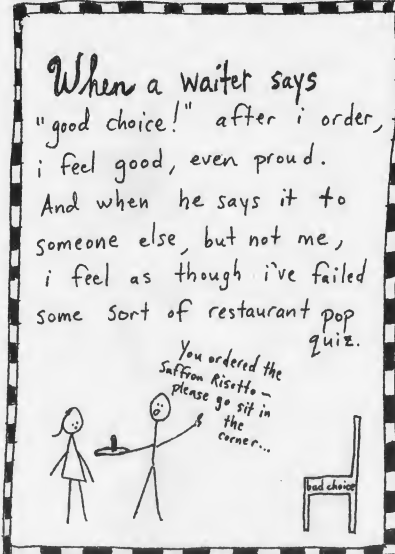 When a waiter says
"good choice!" after i order,
i feel good, even proud.
And when he says it to
someone else, but not me,
i feel as though i've failed
some sort of restaurant pop
quiz.
You ordered the
Saffron Risotto –
please go sit in
the
corner...
bad choice